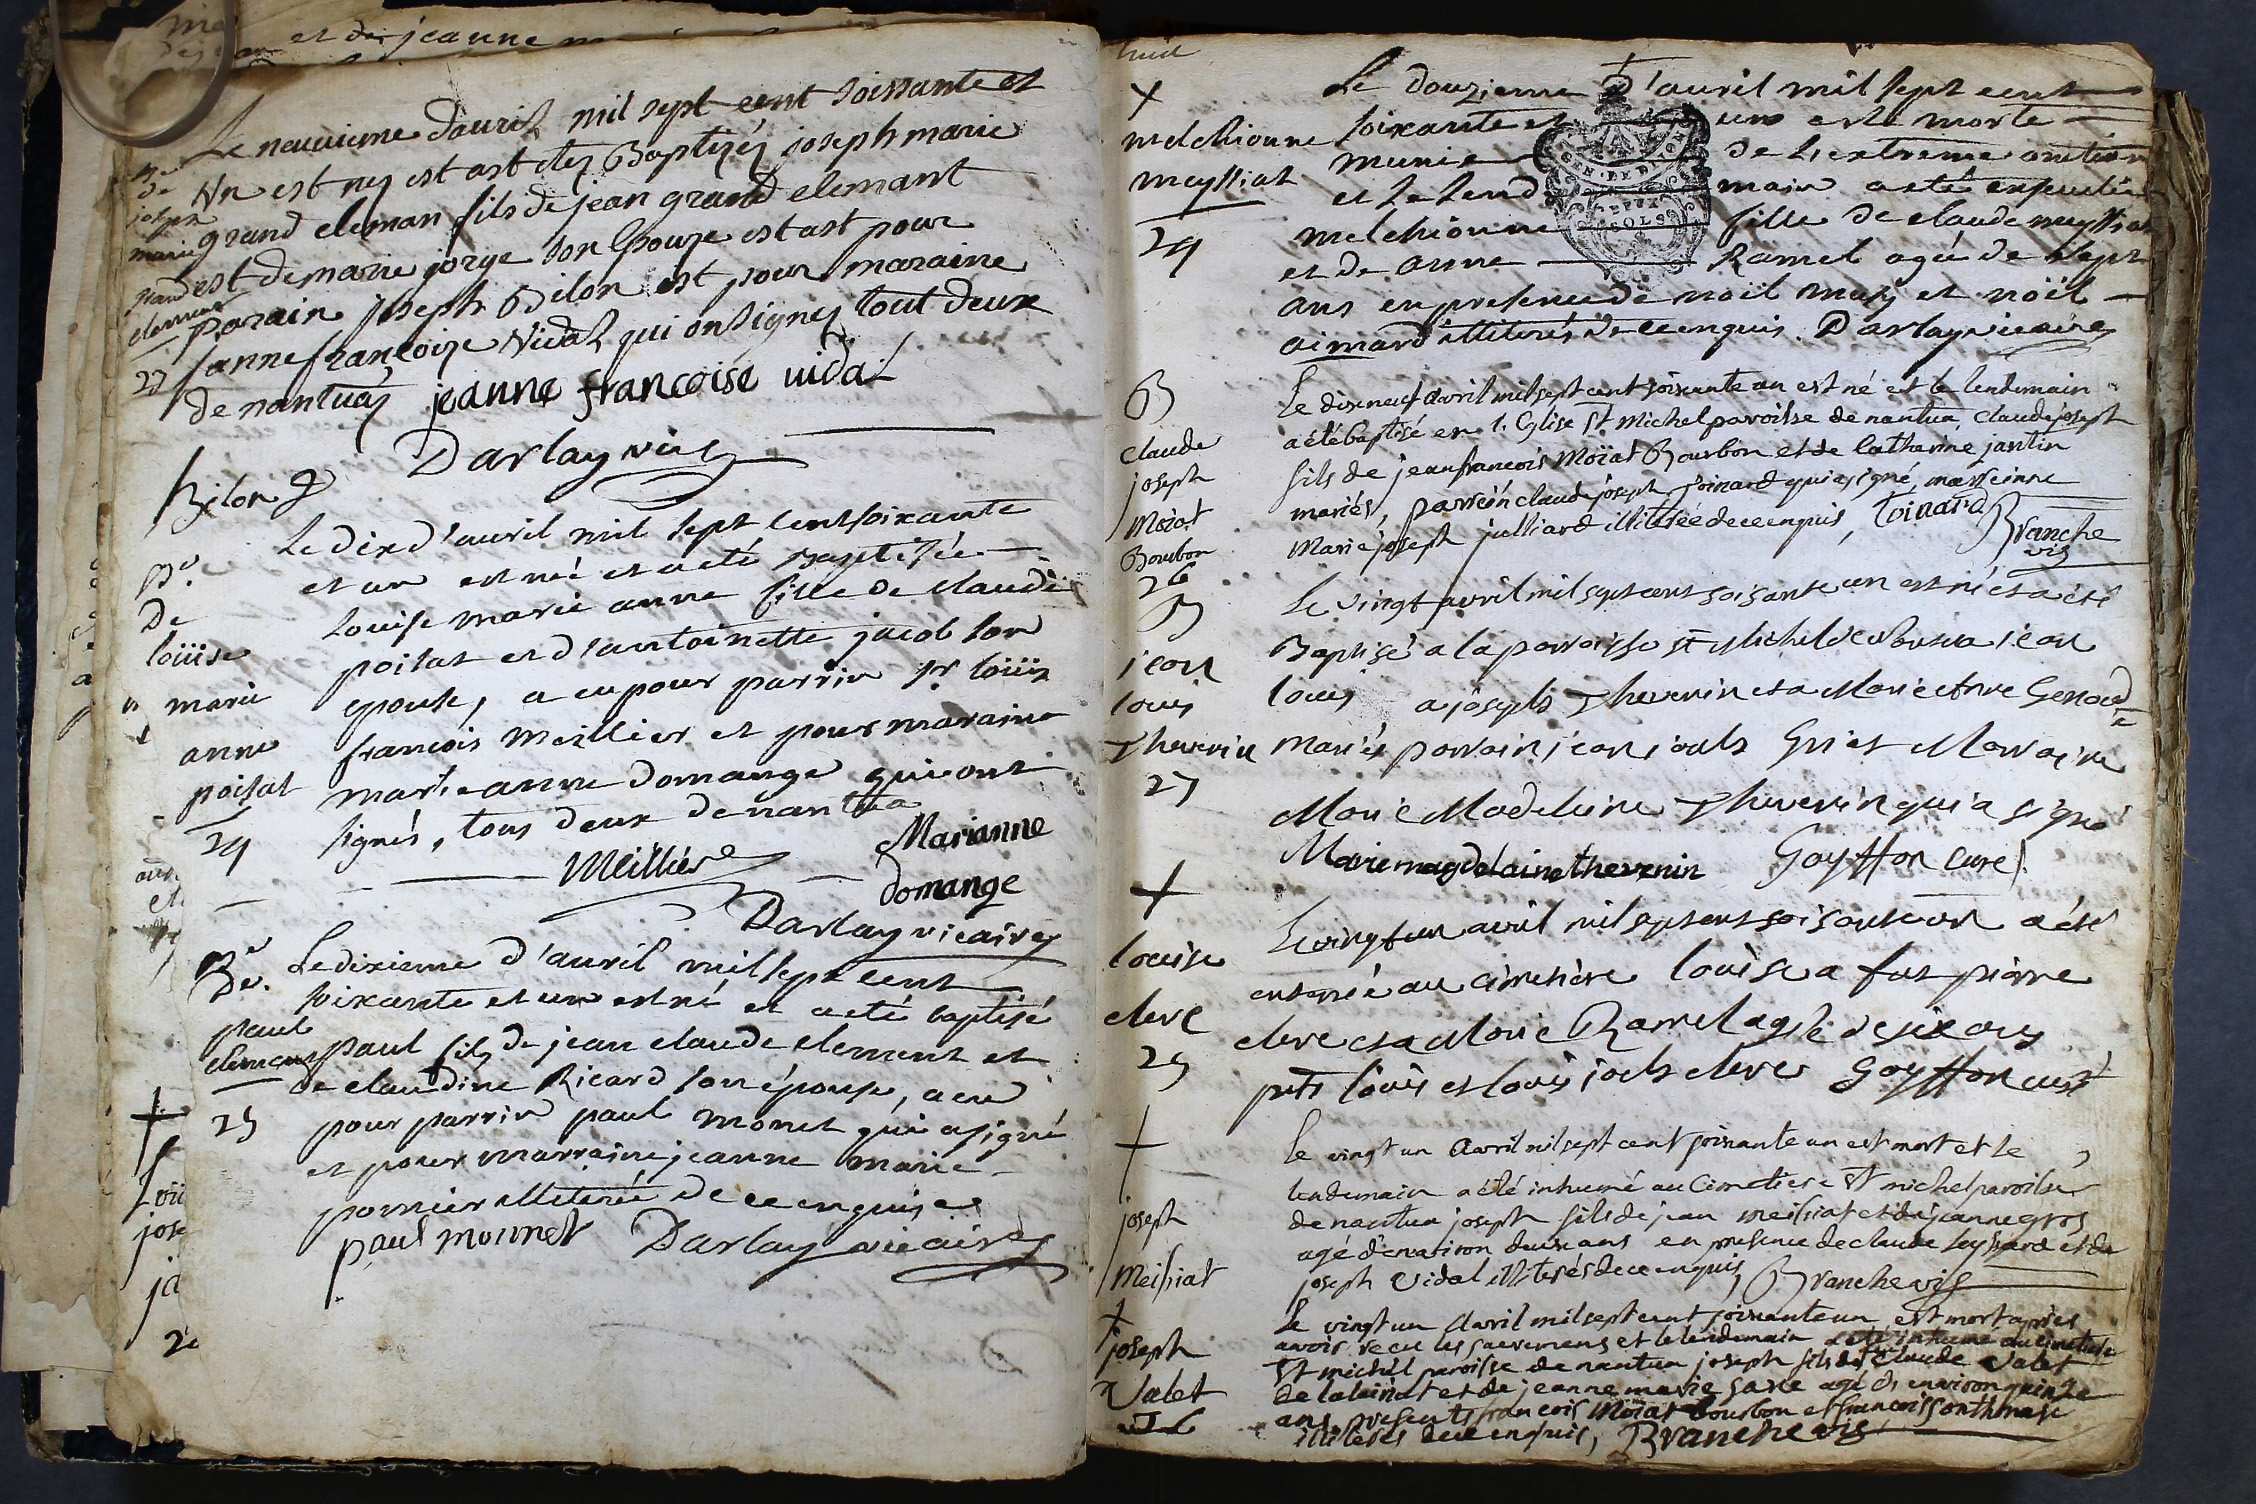 et de jeanne
Be
de
joseph
marie
grand
clement
23
Le neuvieme d'auril mil sept cent soissante et
Vn est ney est ast etey Baptizéz joseph marie
grand cleman fils de jean grand clemant
est de marie jorge son Epouze est ast pour
parain joseph Bilon est pour maraine
janne françoize Vidal qui on signey tout deux
de nantuaz jeanne francoise uidal
Bilon Darlay vic
Be
De
loüise
marie
anne
poisat
24
Le dix d'auril mil sept cent soixante
et un est née et a eté Baptisée
Louise marie anne fille de claude
poisat et d'antoinette jacob son
epouse, a eu pour parrin sr loüis
françois Meillier et pour maraine
marie anne domange qui ont
signés, tous deux de nantua
Meillier Marianne
domange
Darlay vicaire
Be
De.
paul
clement
25
Le dixieme d'auril mil sept cent
soixante et un est né et a eté baptisé
paul fils de jean claude clement et
de claudine Ricard son épouse, a eu
pour parrin paul monet qui a signé
et pour marraine jeanne marie
pornier illiterée de ce enquise
paul mounet Darlay vicaire
Loüi
jose
ja
huit
+
melchionne
meyssiat
24
Le douzieme d'auril mil sept cent
soixante et un est morte
munie de l'extreme onction
et le lend main a eté enseuelie
melchionne fille de claude meyssiat
et de anne Ramel agée de sept
ans en presence de noël musy et noël
aimard illiterés de ce enquis. Darlay vicaire
GEN. DE DIJON
SEPT
SOLS
B
Claude
joseph
Moiat
Bourbon
26
Le dix neuf avril mil sept cent soixante un est né et le lendemain
a été baptisé en l'Eglise St Michel paroisse de nantua, Claude joseph
fils de jean francois Moiat Bourbon et de Catherine jantin
mariés, parrein claude joseph Toinard qui a signé, marreinne
Marie joseph julliard illiterée de ce enquis, Toinard
Branche
vic
B
jean
louis
Thevenin
27
Le vingt avril mil sept cent soisante un est né et a été
Baptisé a la parroisse st Michel de Nantua jean
louis a joseph Thevenin et a Marie Anne Genoud
Mariés parrain jean jacls Griet Marraine
Marie Madeleine Thevenin qui a signé
Marie magdelaine thevenin Goyffon curé
+
Louise
clerc
25
Le vingt un avril mil sept cent soisante un a été
enterrée au cimetière louise a fut pierre
clerc et a Marie Ramel agée de six ans
pnts louis et louis jacls clerc Goyffon curé
+
joseph
Meissiat
Le vingt un avril mil sept cent soixante un est mort et le
lendemain a été inhumé au Cimetiere St michel paroisse
de nantua joseph fils de jean meissiat et de jeanne gros
agé d'environ deux ans en presence de claude Leyssard et de
joseph Vidal illiterés de ce enquis, Branche vic
+
joseph
Valet
Le vingt un avril mil sept cent soixante un est mort après
avoir recu les sacremens et le lendemain a eté inhumé au cimetiere
St michel paroisse de nantua joseph fils de Claude Valet
et de jeanne marie agé d'environ quinze
ans, presents francois Moiat Bourbon et francois
illiterés de ce enquis, Branche vic